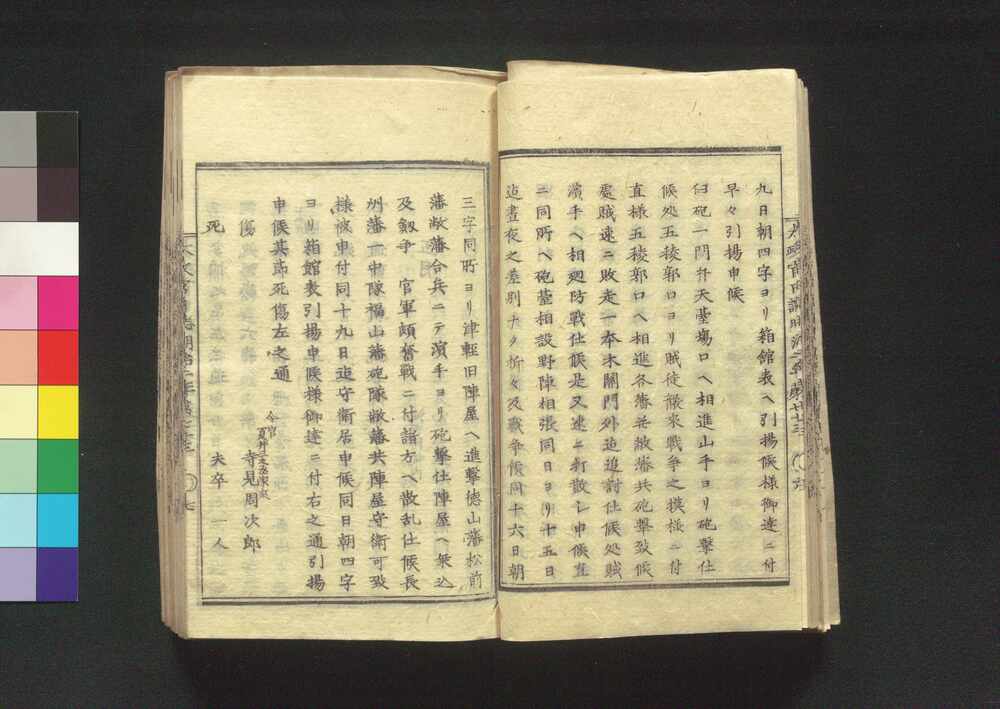 九日朝四字ヨリ箱館表ヘ引揚候様御達ニ付
早々引揚申候
臼砲一門弁天臺場口ヘ相進山手ヨリ砲撃仕
候処五稜郭口ヨリ賊徒襲来戦争之模様ニ付
直様五稜郭口ヘ相進各藩並敝藩共砲撃致候
處賊速ニ敗走一本木關門外迄追討仕候処賊
濱手ヘ相廻防戦仕候是又速ニ打散シ申候直
ニ同所ヘ砲臺相設野陣相張同日ヨリ十五日
迄晝夜之差別ナク折々及戦争候同十六日朝
三字同所ヨリ津軽旧陣屋ヘ進撃徳山藩松前
藩敝藩合兵ニテ濱手ヨリ砲撃仕陣屋ヘ乗込
及劔争 官軍頗奮戦ニ付諸方ヘ散乱仕候長
州藩一中隊福山藩砲隊敝藩共陣屋守衛可致
様被申付同十九日迄守衛居申候同日朝四字
ヨリ箱館表引揚申候様御達ニ付右之通引揚
申候其節死傷左之通
傷 寺見周次郎
死 夫卒 一人